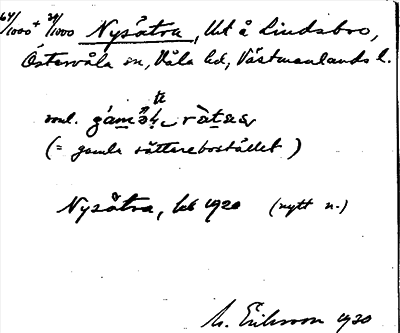 64/1000 + 39/1000 Nysätra, lht å Lindsbro,
Östervåla sn, Våla hd, Västmanlands l.
(= gamla sätterebostället)
Nysätra, lht 1920 (nytt n.)
M. Eriksson 1930